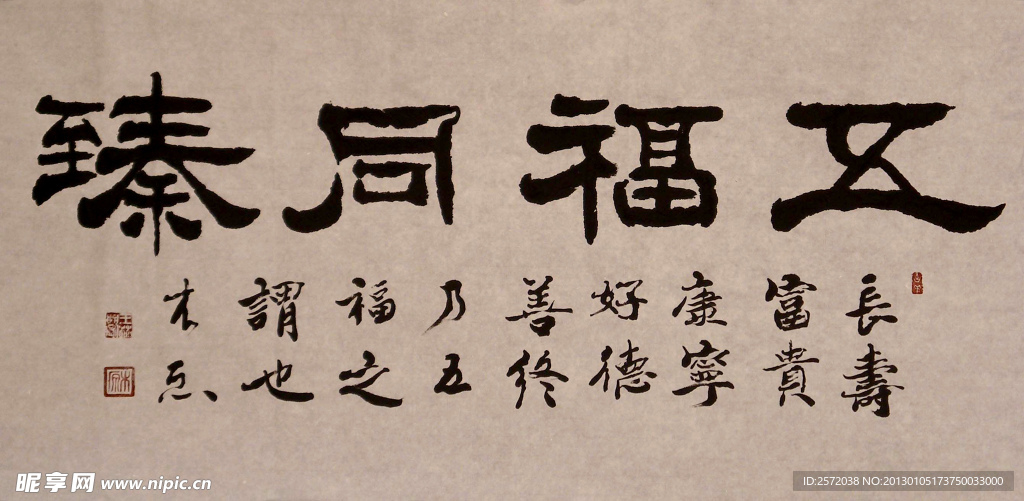 五福同臻
長壽
富貴
康寧
好德
善終
乃五
福之
謂也
昵享网 www.nipic.cn
ID:2572038 NO:20130105173750033000